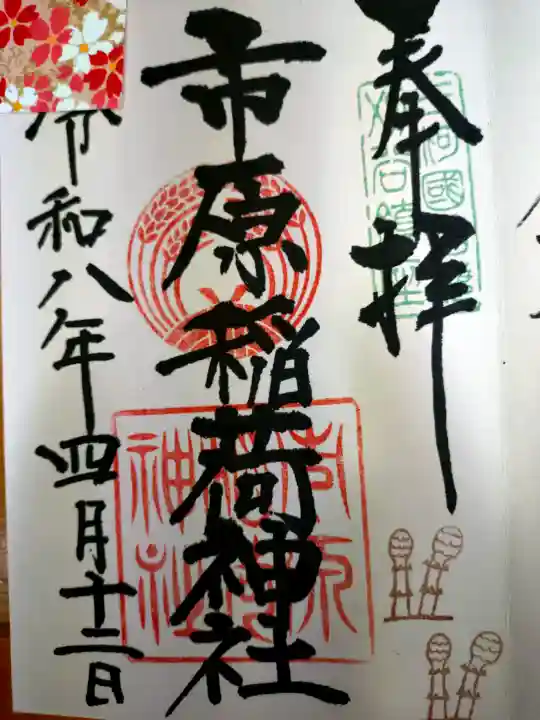 奉拝
市原稲荷神社
令和八年四月十二日